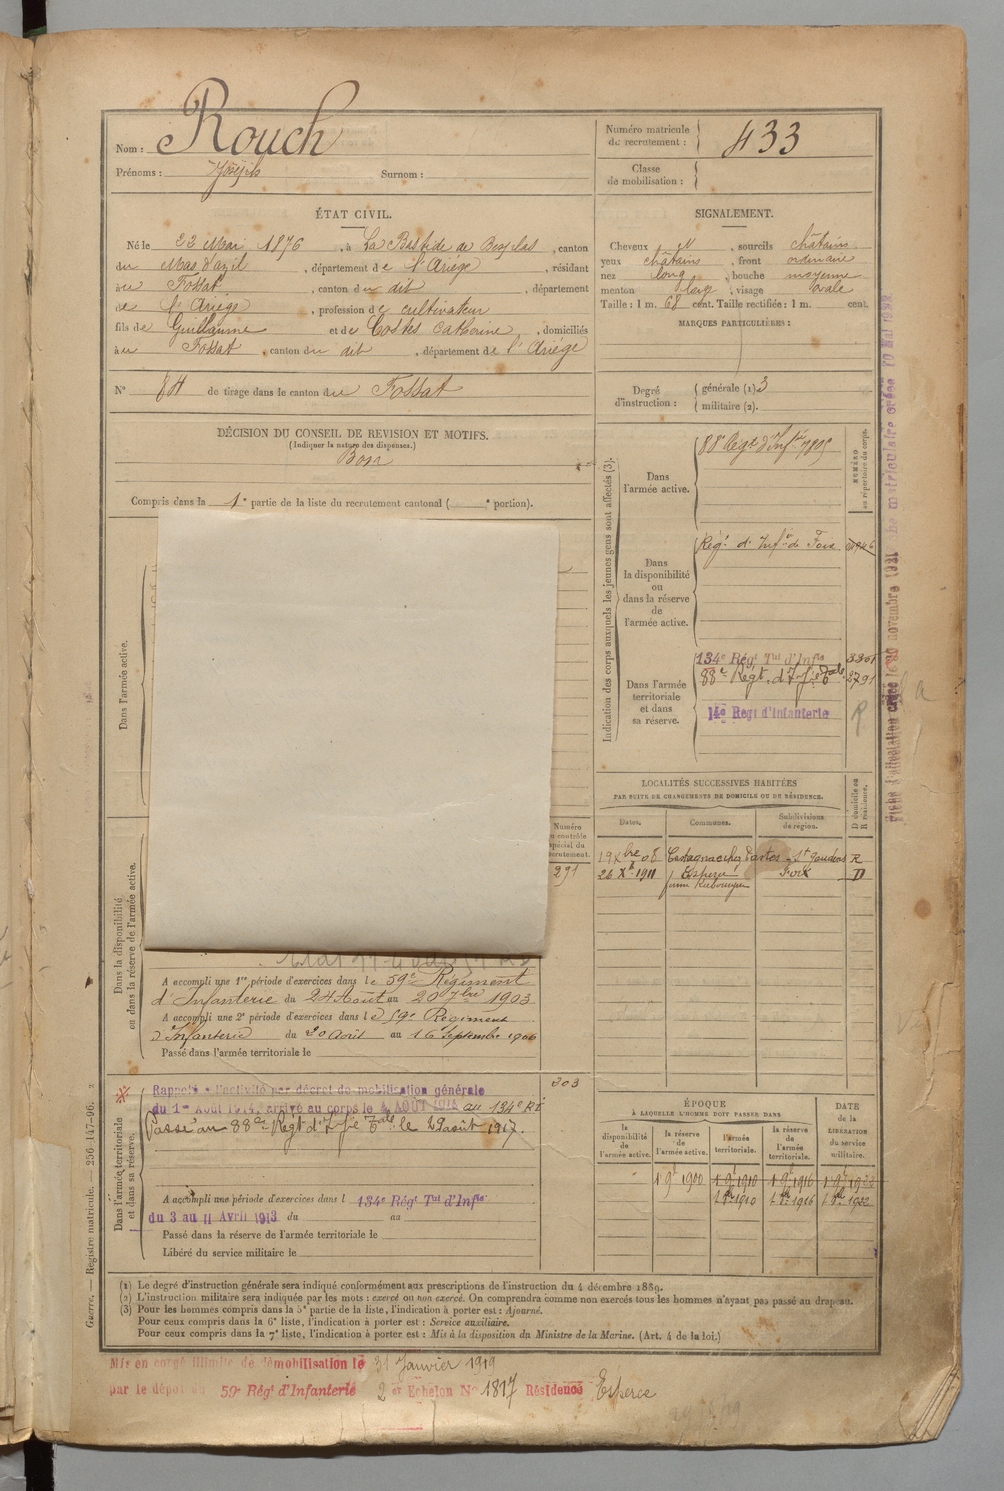 Nom : Rouch
Prénoms : Joseph Surnom :
Numéro matricule de recrutement : 433
Classe de mobilisation :
ÉTAT CIVIL.
Né le 23 Mai 1876, à La Bastide de Besplas, canton
du Mas d'azil, département de l'Ariège, résidant
au Fossat, canton du dit, département
de l'Ariège, profession de cultivateur
fils de Guillaume et de Costes Catherine, domiciliés
à au Fossat, canton du dit, département de l'Ariège
N° 84 de tirage dans le canton du Fossat
SIGNALEMENT.
Cheveux N, sourcils châtains
yeux châtains, front ordinaire
nez long, bouche moyenne
menton large, visage ovale
Taille : 1 m. 68 cent. Taille rectifiée : 1 m. cent.
MARQUES PARTICULIÈRES :
Degré d'instruction : générale (1) 3
militaire (2).
DÉCISION DU CONSEIL DE REVISION ET MOTIFS.
(Indiquer la nature des dispenses.)
Bon
Compris dans la 1e partie de la liste du recrutement cantonal ( e portion).
Indication des corps auxquels les jeunes gens sont affectés (3).
NUMÉRO au répertoire du corps.
Dans l'armée active.
88e Régt d'Infie
Dans la disponibilité ou dans la réserve de l'armée active.
Régt d'Infie de Foix
Dans l'armée territoriale et dans sa réserve.
134e Régt Tal d'Infie 3301
88e Régt d'Infie Tale 2791
14e Régt d'Infanterie
R
LOCALITÉS SUCCESSIVES HABITÉES
PAR SUITE DE CHANGEMENTS DE DOMICILE OU DE RÉSIDENCE.
Dates. Communes. Subdivisions de région. D domicile ou R résidence.
19 Xbre 08 St Gaudens R
26 Xe 1911 Esperce Foix D
Dans l'armée active.
Numéro au contrôle spécial du recrutement.
291
Dans la disponibilité ou dans la réserve de l'armée active.
A accompli une 1re période d'exercices dans le 59e Régiment
d'Infanterie du 24 Août au 20 7bre 1903
A accompli une 2e période d'exercices dans le 59e Régiment
d'Infanterie du 20 Août au 16 Septembre 1906
Passé dans l'armée territoriale le
303
Dans l'armée territoriale et dans sa réserve.
Rappelé à l'activité par décret de mobilisation générale
du 1er Août 1914, arrivé au corps le 4 AOUT 1914 au 134e RI
Passé au 88e Régt d'Infie Tale le 29 août 1917.
A accompli une période d'exercices dans l 134e Régt Tal d'Infie
du 3 au 11 Avril 1913 du au
Passé dans la réserve de l'armée territoriale le
Libéré du service militaire le
ÉPOQUE
À LAQUELLE L'HOMME DOIT PASSER DANS
DATE de la LIBÉRATION du service militaire.
la disponibilité de l'armée active. la réserve de l'armée active. l'armée territoriale. la réserve de l'armée territoriale.
1 9e 1900 1 9e 1910 1 9e 1916 1 9e 1922
(1) Le degré d'instruction générale sera indiqué conformément aux prescriptions de l'instruction du 4 décembre 1889.
(2) L'instruction militaire sera indiquée par les mots : exercé ou non exercé. On comprendra comme non exercés tous les hommes n'ayant pas passé au drapeau.
(3) Pour les hommes compris dans la 5e partie de la liste, l'indication à porter est : Ajourné.
Pour ceux compris dans la 6e liste, l'indication à porter est : Service auxiliaire.
Pour ceux compris dans la 7e liste, l'indication à porter est : Mis à la disposition du Ministre de la Marine. (Art. 4 de la loi.)
Mis en congé illimité de démobilisation le 31 Janvier 1919
par le dépôt du 59e Régt d'Infanterie 2e Echelon No 1817 Résidence Esperce
Guerre. — Registre matricule. 256-147-96.